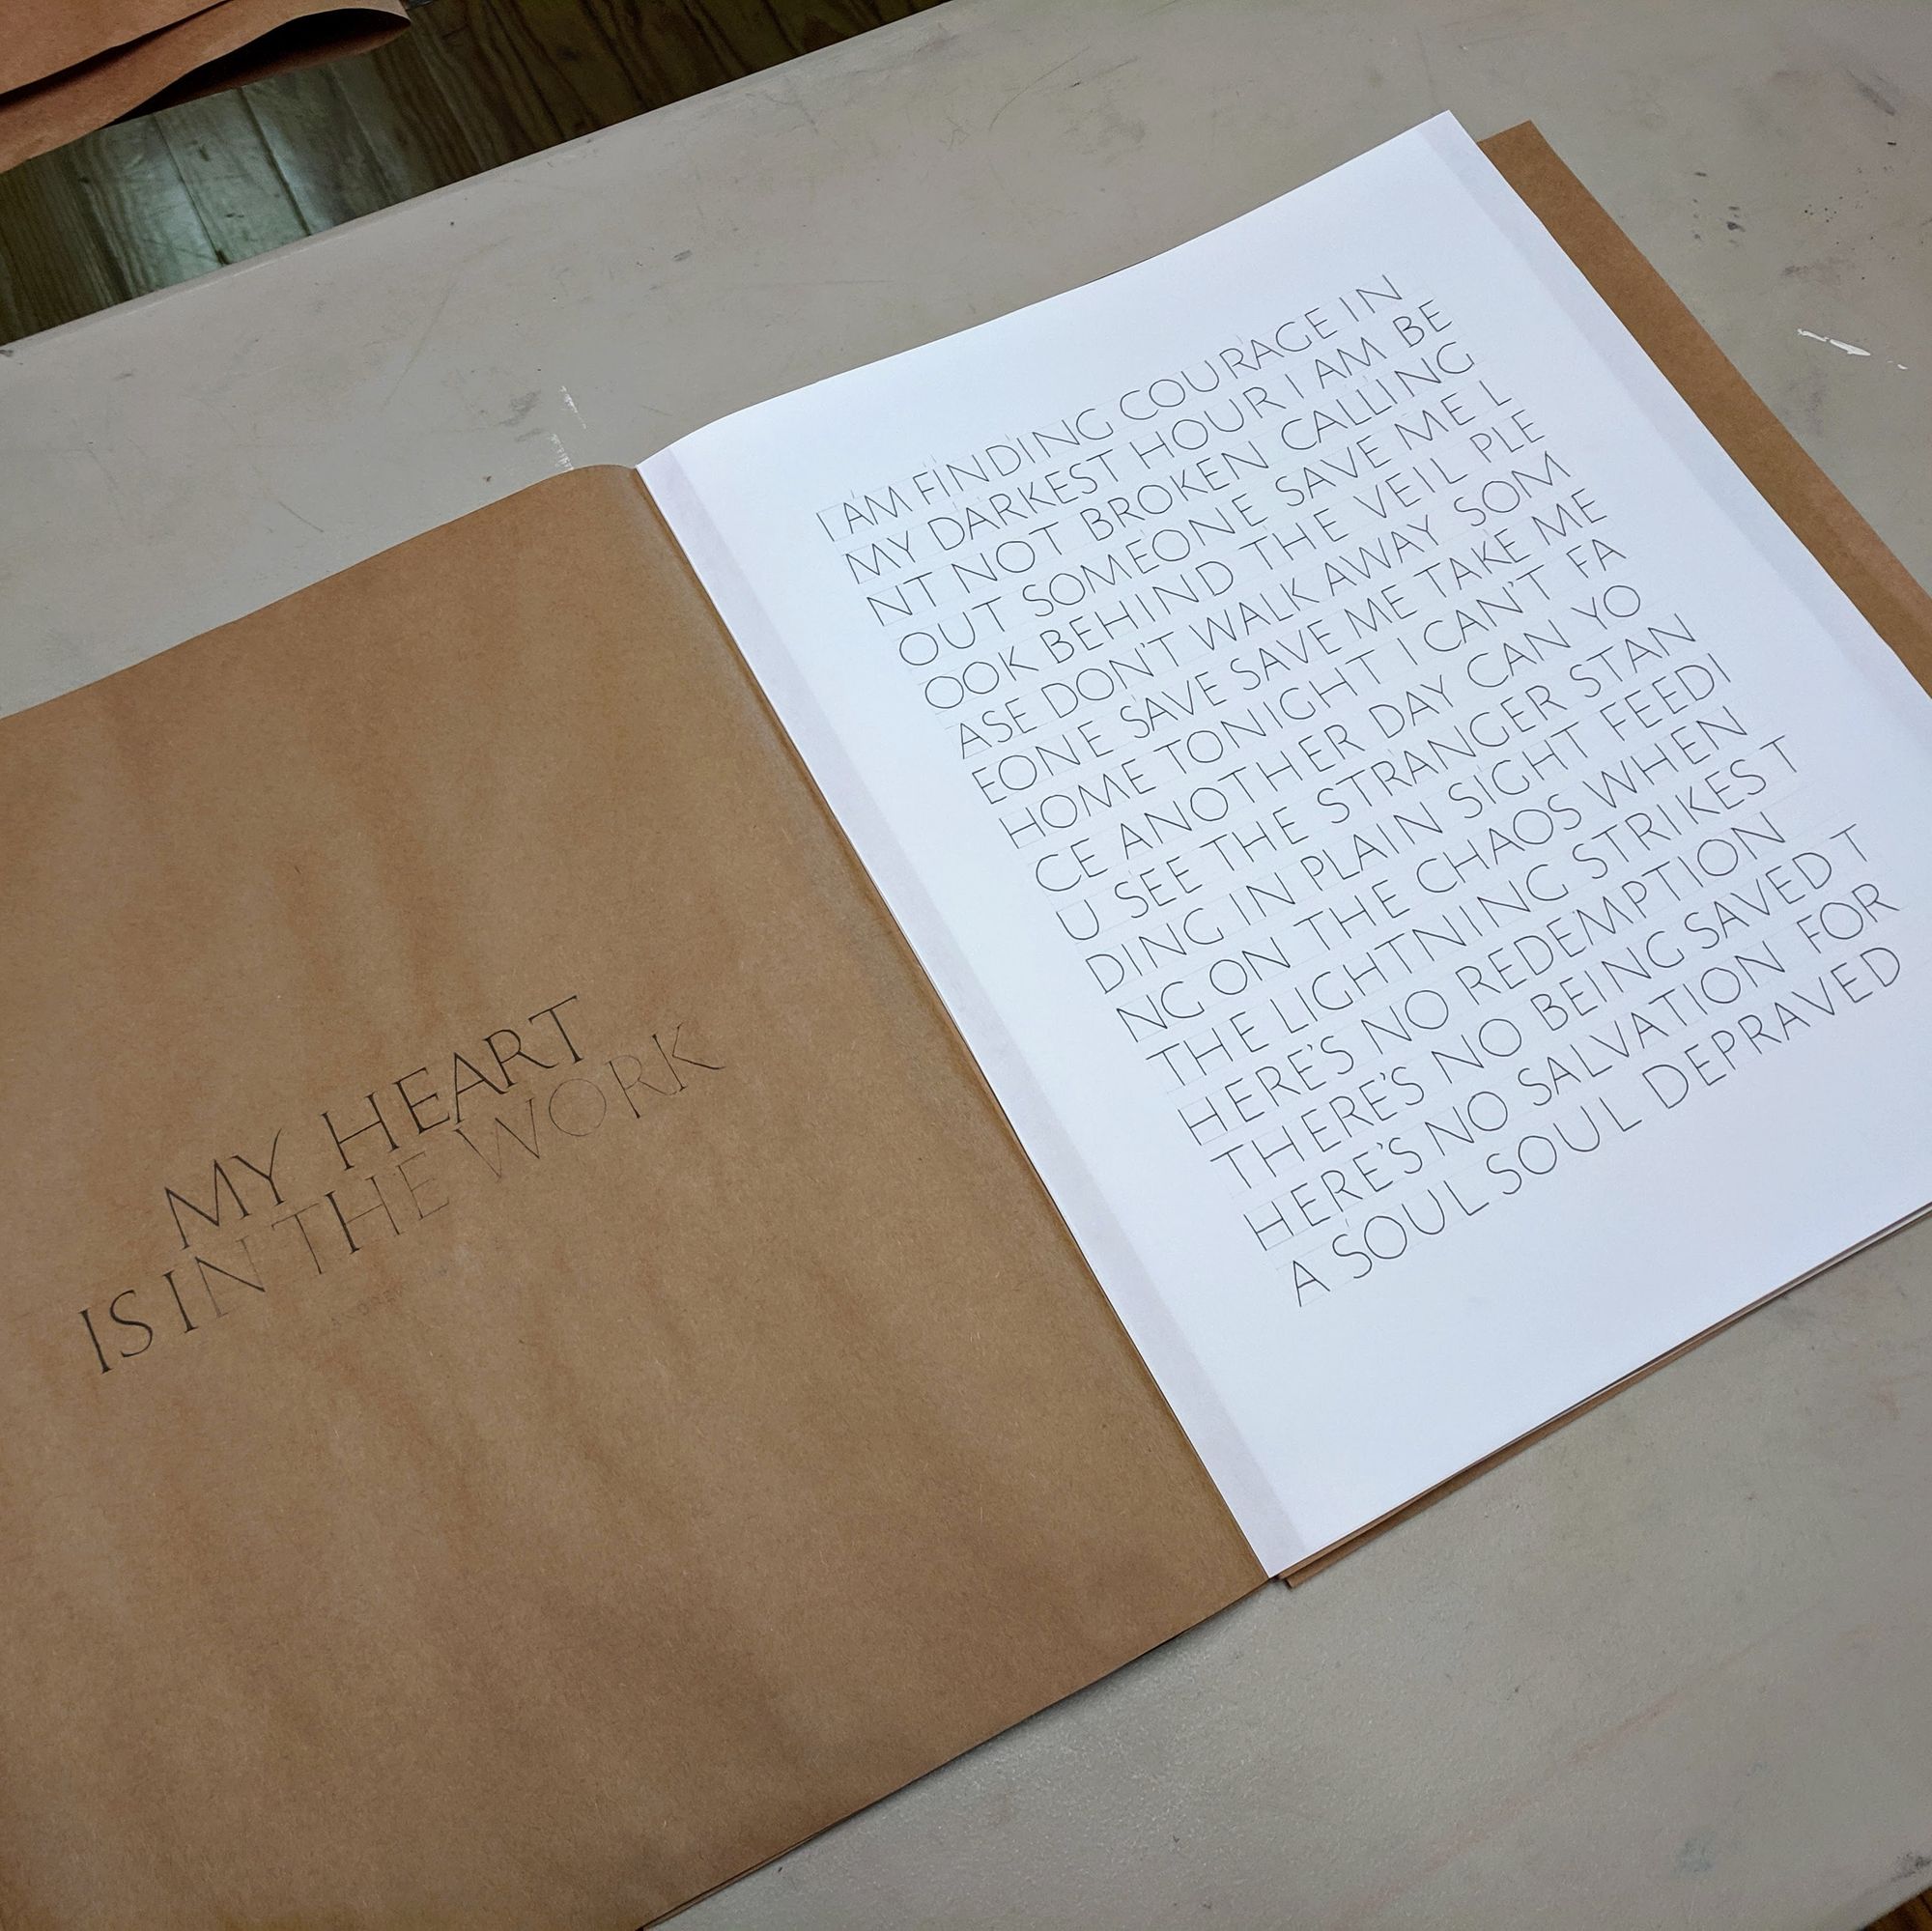 MY HEART
IS IN THE WORK
I AM FINDING COURAGE IN
MY DARKEST HOUR I AM BE
NT NOT BROKEN CALLING
OUT SOMEONE SAVE ME L
OOK BEHIND THE VEIL PLE
ASE DON'T WALK AWAY SOM
EONE SAVE SAVE ME TAKE ME
HOME TONIGHT I CAN'T FA
CE ANOTHER DAY CAN YO
U SEE THE STRANGER STAN
DING IN PLAIN SIGHT FEEDI
NG ON THE CHAOS WHEN
THE LIGHTNING STRIKES T
HERE'S NO REDEMPTION
THERE'S NO BEING SAVED T
HERE'S NO SALVATION FOR
A SOUL SOUL DEPRAVED